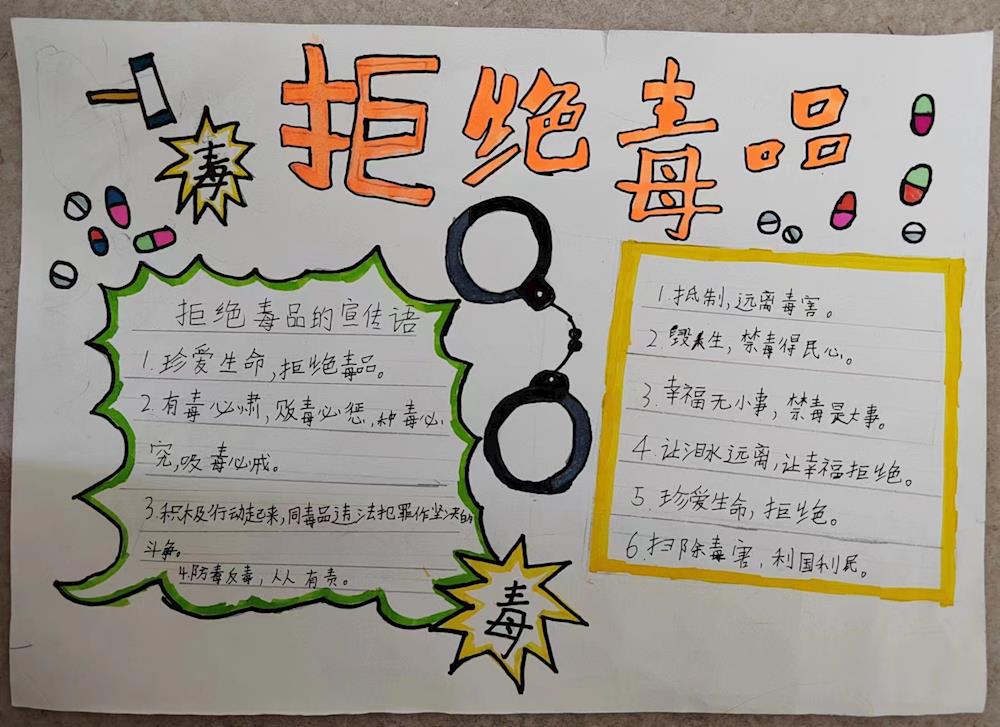 拒绝毒品
毒
拒绝毒品的宣传语
1.珍爱生命,拒绝毒品。
2.有毒必肃,贩毒必惩,种毒必
究,吸毒必戒。
3.积极行动起来,同毒品违法犯罪作坚决的
斗争。
4.防毒反毒,人人有责。
毒
1.抵制,远离毒害。
2.毁人生,禁毒得民心。
3.幸福无小事,禁毒是大事。
4.让泪水远离,让幸福拒绝。
5.珍爱生命,拒绝。
6.扫除毒害,利国利民。